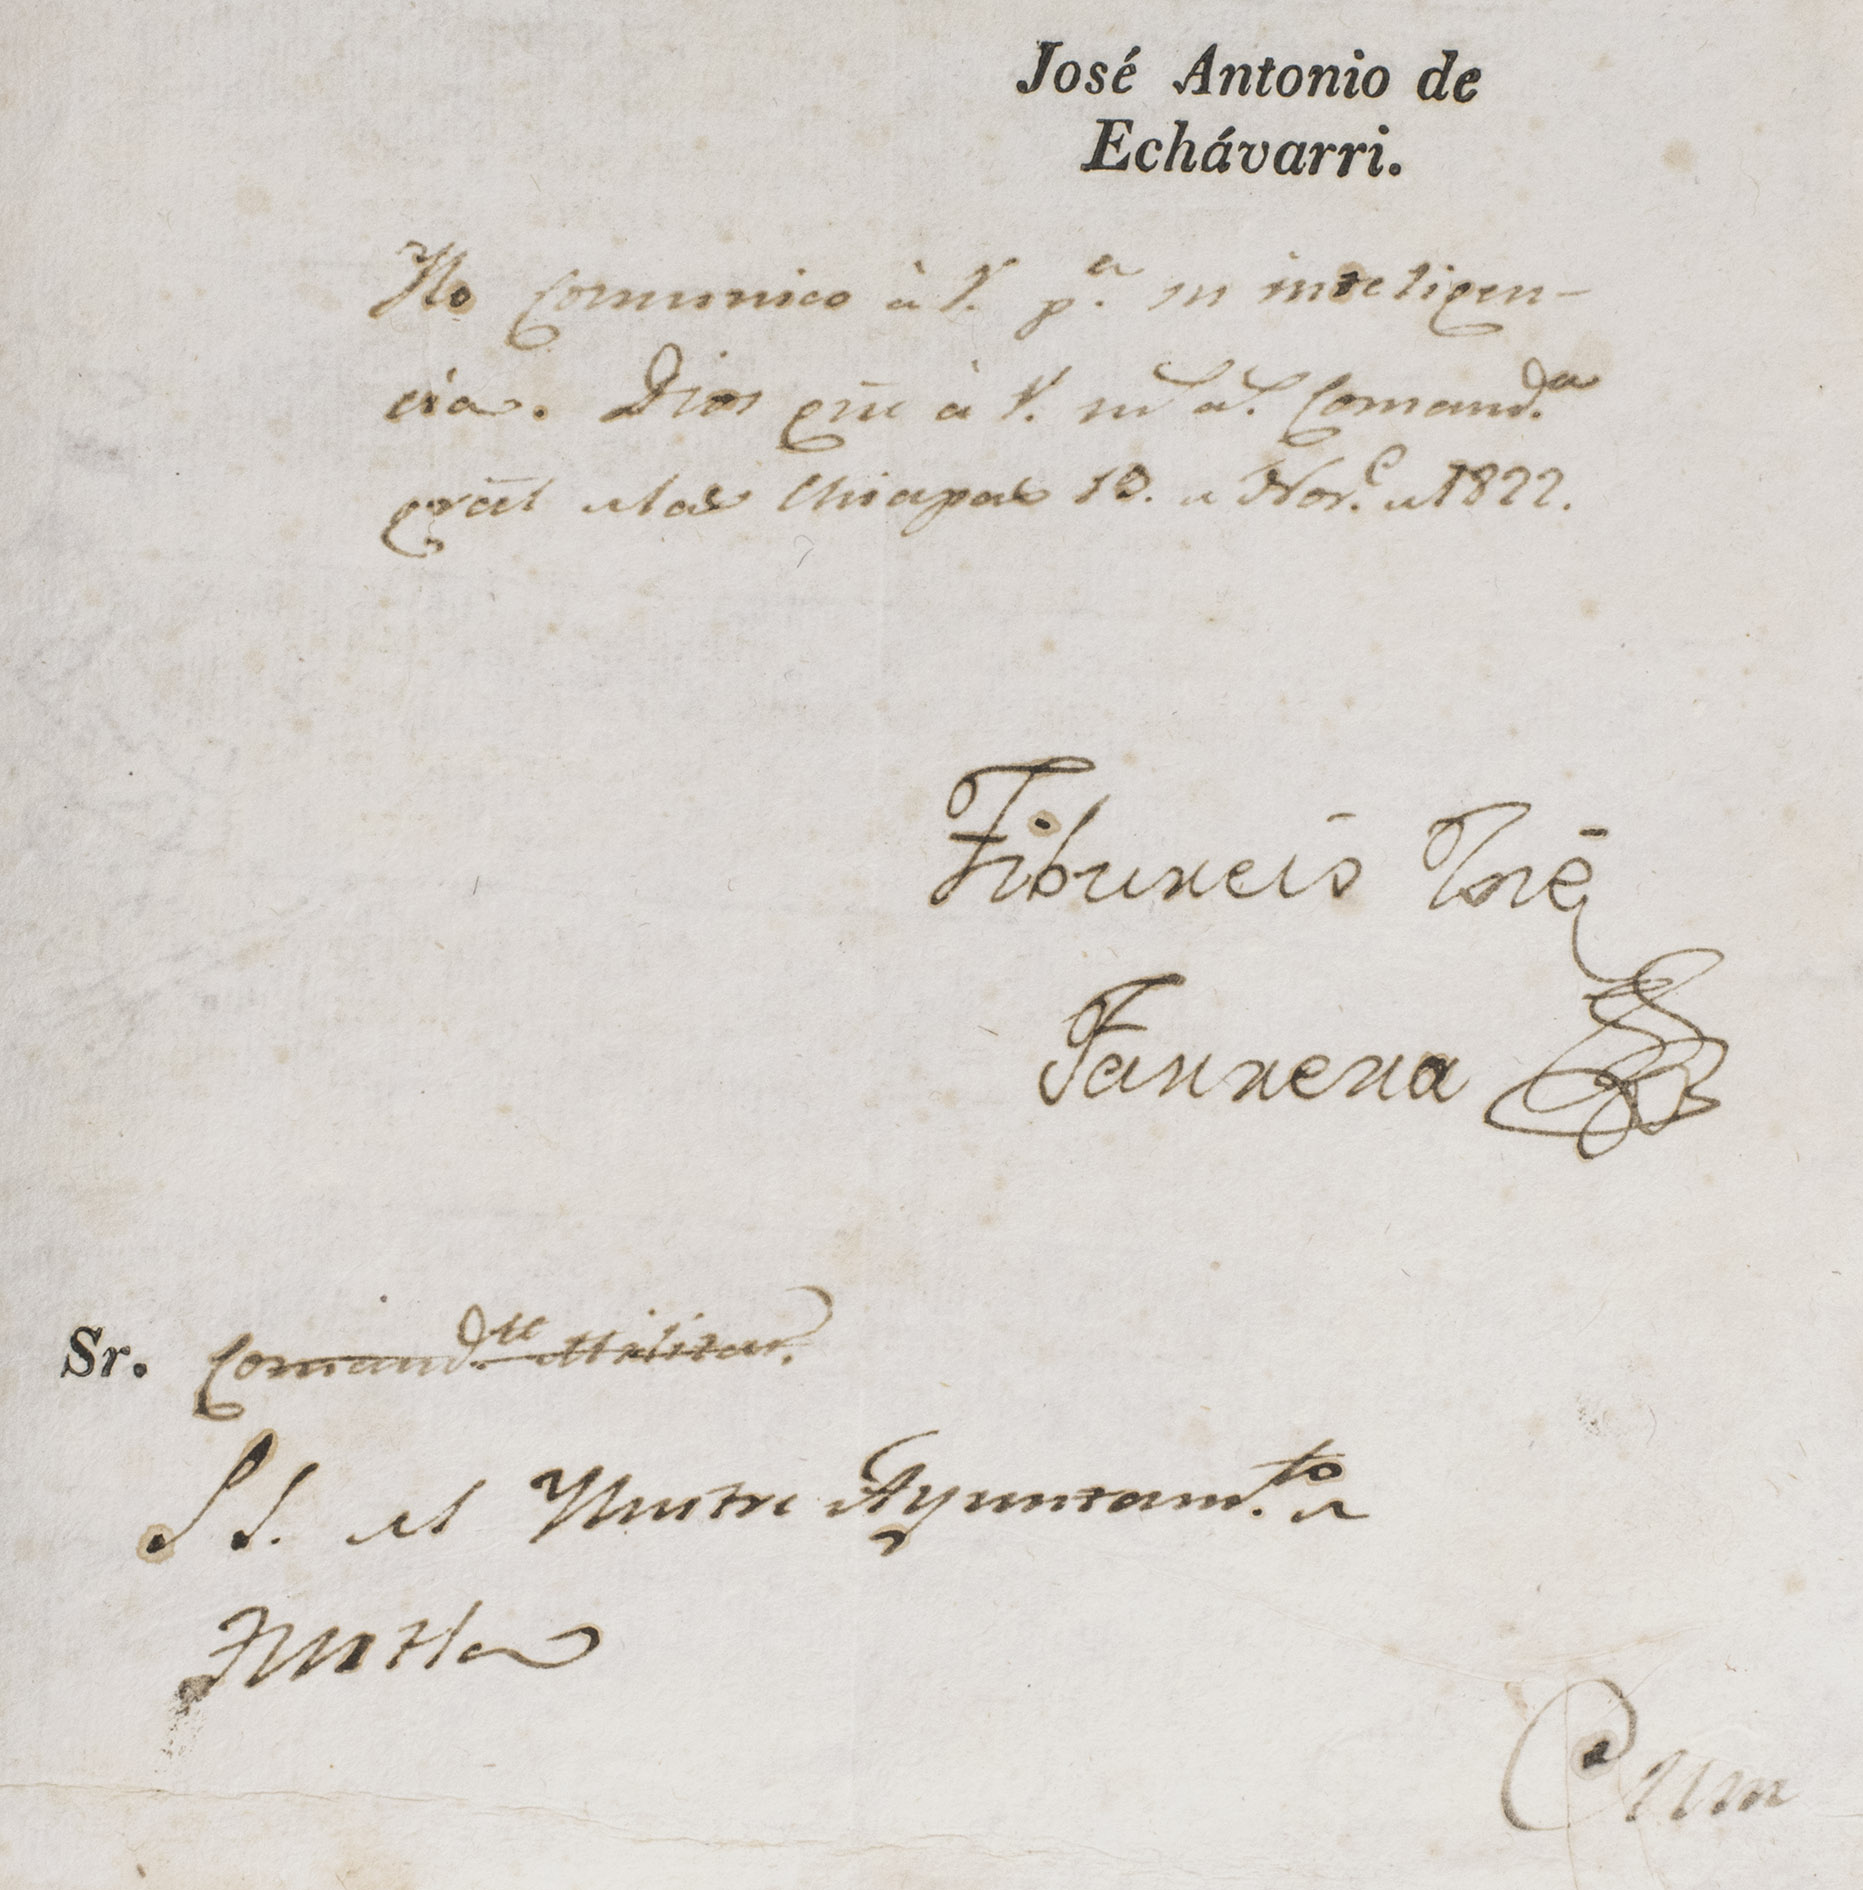 José Antonio de
Echávarri.
Yo comunico à V. p.ª su inteligen-
cia. Dios gũe à V. m.ˢ a.ˢ Comand.ª
gral de las Chiapas 13. de Nov.e de 1822.
Tiburcio José
Farrera
Sr. Comand.te Militar.
S S. del Yllustre Ayuntam.to de
Tustla